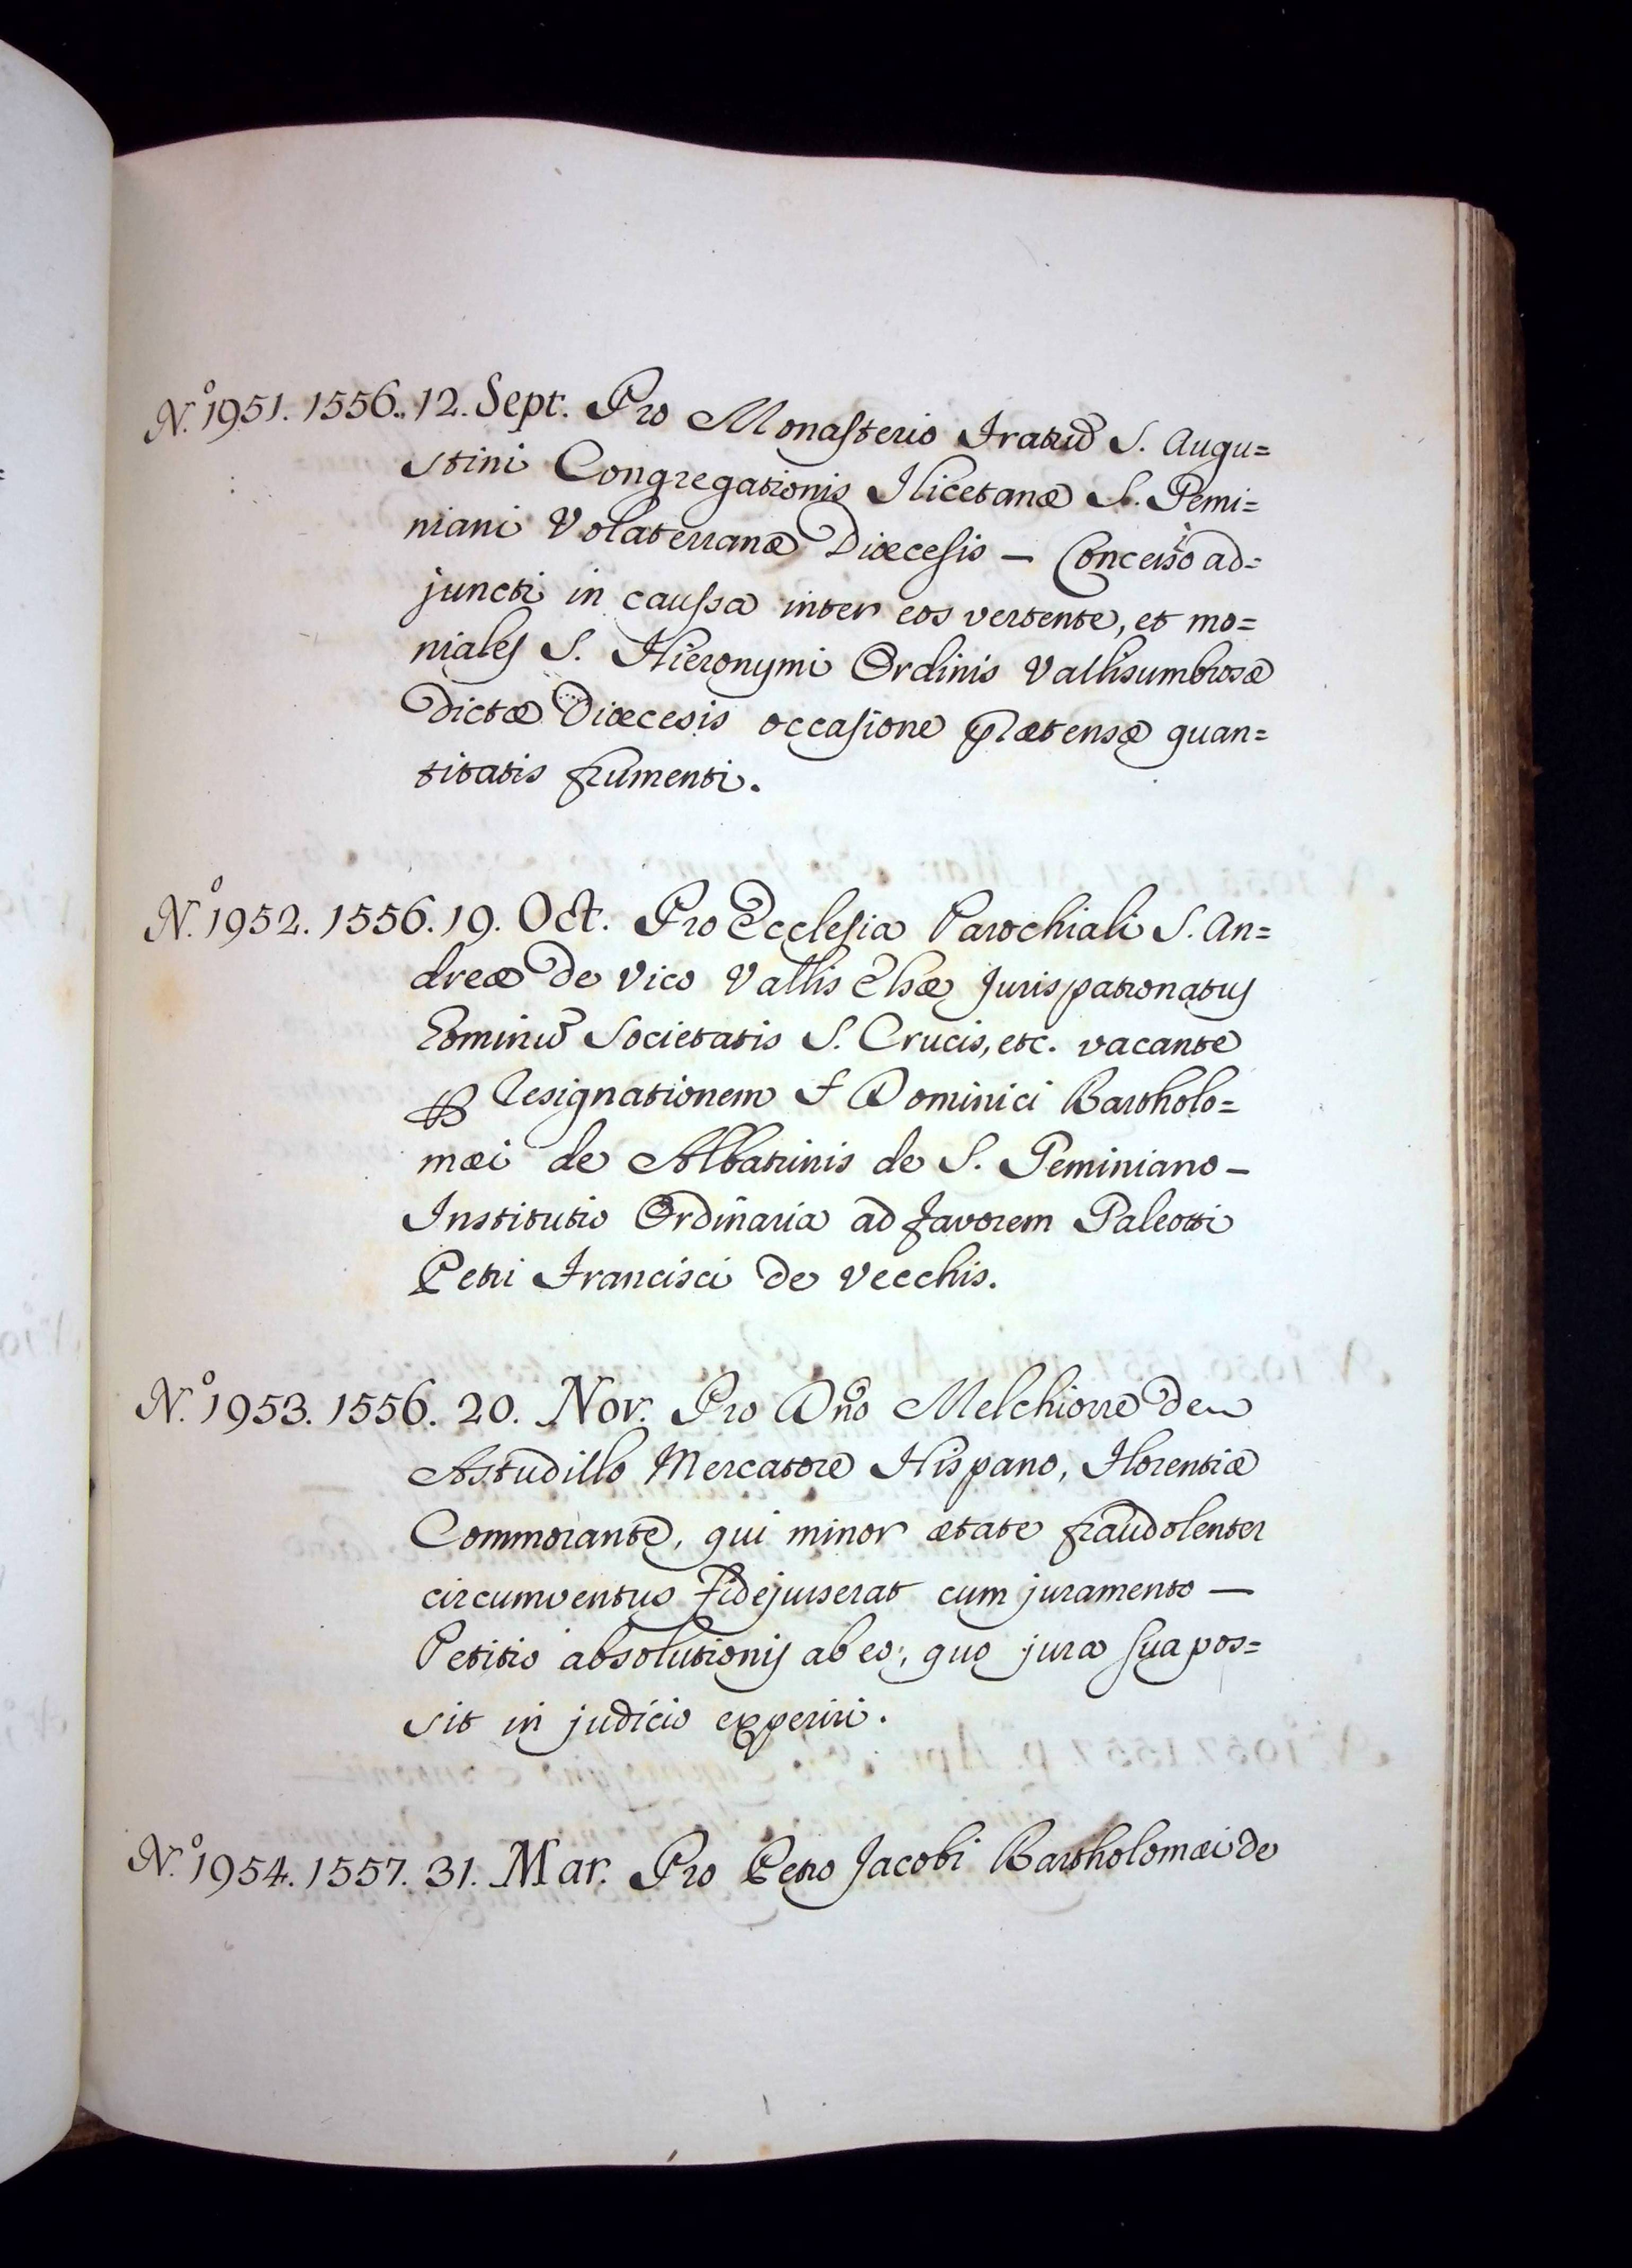 N.º 1951. 1556. 12. Sept. Pro Monasterio Fratrũ S. Augu=
stini Congregationis Ilicetanæ S. Gemi=
niani Volaterranæ Diœcesis — Concessio ad=
juncti in caussa inter eos vertente, et mo=
niales S. Hieronymi Ordinis Vallisumbrosæ
dictæ Diœcesis occasione prætensæ quan=
titatis frumenti.
N.º 1952. 1556. 19. Oct. Pro Ecclesia Parochiali S. An=
dreæ de Vico Vallis Elsæ Jurispatronatus
Hominũ Societatis S. Crucis, etc. vacante
Resignationem Dominici Bartholo=
mæi de Albatrinis de S. Geminiano —
Institutio Ordinaria ad favorem Galeotti
Petri Francisci de Vecchis.
N.º 1953. 1556. 20. Nov. Pro Dño Melchiorre de
Astudillo Mercatore Hispano, Florentiæ
Commorante, qui minor ætate fraudolenter
circumventus Fidejusserat cum juramento —
Petitio absolutionis ab eo, quo jura sua pos=
sit in judicio experiri.
N.º 1954. 1557. 31. Mar. Pro Petro Jacobi Bartholomæi de